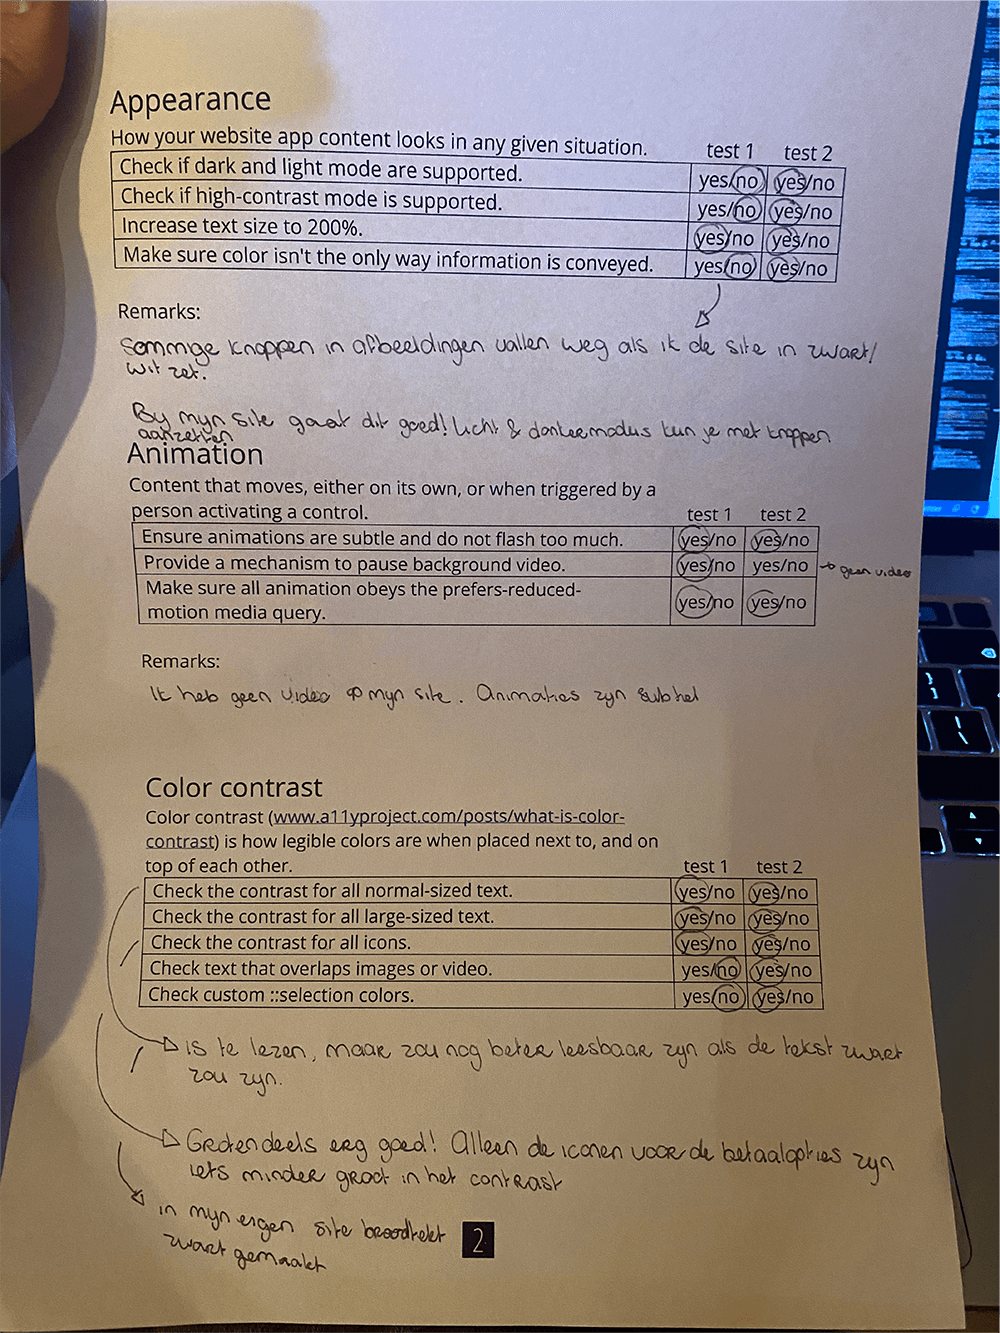 Appearance
How your website app content looks in any given situation. test 1 test 2
Check if dark and light mode are supported. yes/no yes/no
Check if high-contrast mode is supported. yes/no yes/no
Increase text size to 200%. yes/no yes/no
Make sure color isn't the only way information is conveyed. yes/no yes/no
Remarks:
Sommige knoppen in afbeeldingen vallen weg als ik de site in zwart/
wit zet.
By myn site gaat dit goed! Licht & donkermodus kun je met knoppen
aanzetten
Animation
Content that moves, either on its own, or when triggered by a
person activating a control. test 1 test 2
Ensure animations are subtle and do not flash too much. yes/no yes/no
Provide a mechanism to pause background video. yes/no yes/no → geen video
Make sure all animation obeys the prefers-reduced-
motion media query. yes/no yes/no
Remarks:
Ik heb geen video op myn site. Animaties zyn subtiel
Color contrast
Color contrast (www.a11yproject.com/posts/what-is-color-
contrast) is how legible colors are when placed next to, and on
top of each other. test 1 test 2
Check the contrast for all normal-sized text. yes/no yes/no
Check the contrast for all large-sized text. yes/no yes/no
Check the contrast for all icons. yes/no yes/no
Check text that overlaps images or video. yes/no yes/no
Check custom ::selection colors. yes/no yes/no
is te lezen, maar zou nog beter leesbaar zyn als de tekst zwart
zou zyn.
Grotendeels erg goed! Alleen de iconen voor de betaalopties zyn
iets minder groot in het contrast
in myn eigen site broodtekt
zwart gemaakt
2